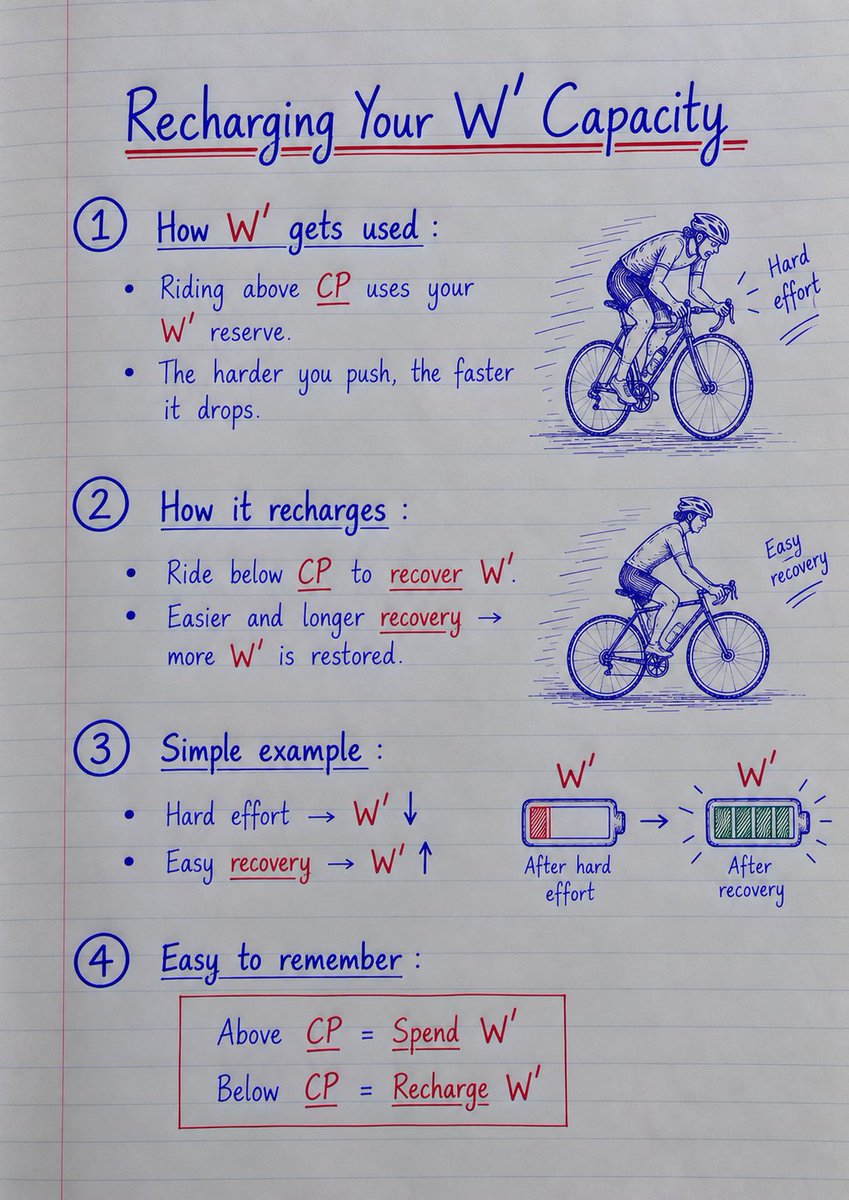 Recharging Your W' Capacity
1 How W' gets used :
• Riding above CP uses your
W' reserve.
• The harder you push, the faster
it drops.
Hard
effort
2 How it recharges :
• Ride below CP to recover W'.
• Easier and longer recovery →
more W' is restored.
Easy
recovery
3 Simple example :
• Hard effort → W' ↓
• Easy recovery → W' ↑
W' → W'
After hard
effort
After
recovery
4 Easy to remember :
Above CP = Spend W'
Below CP = Recharge W'